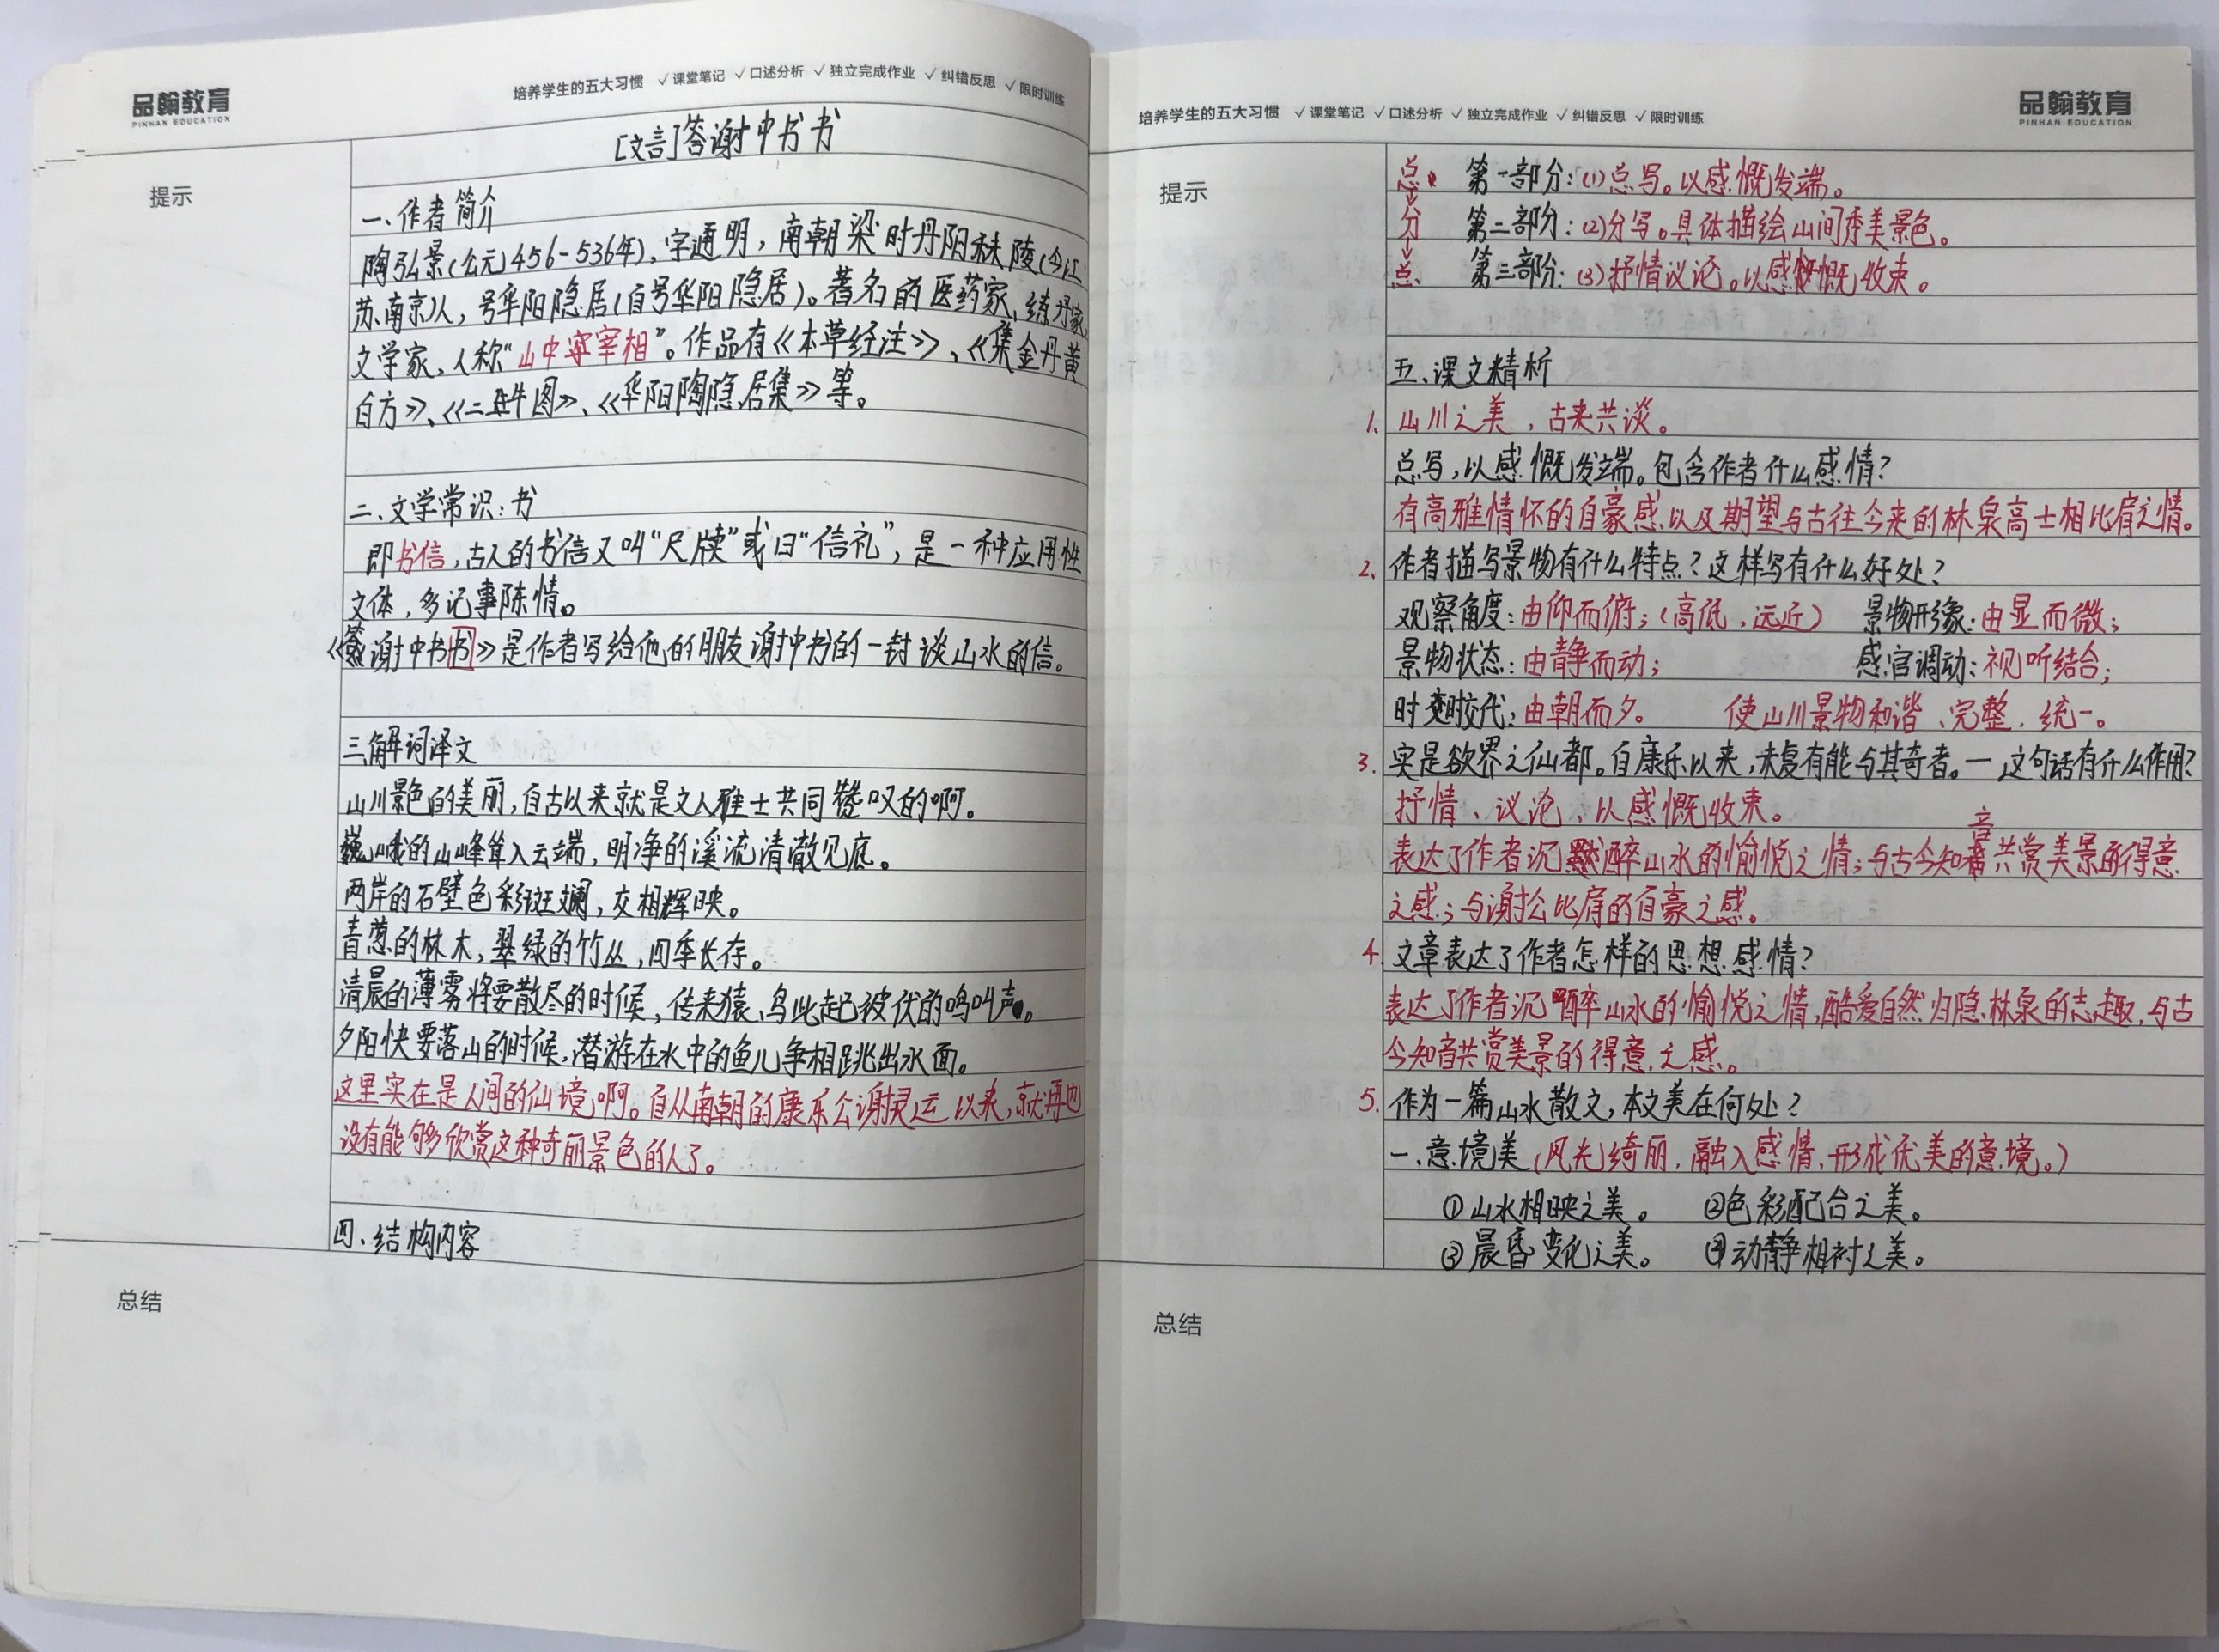 品翰教育
PINHAN EDUCATION
培养学生的五大习惯 ✓课堂笔记 ✓口述分析 ✓独立完成作业 ✓纠错反思 ✓限时训练
[文言]答谢中书书
提示
一、作者简介
陶弘景(公元)456-536年),字通明,南朝梁时丹阳秣陵(今江
苏南京)人,号华阳隐居(自号华阳隐居)。著名的医药家、练丹家、
文学家,人称“山中宰相”。作品有《本草经注》、《集金丹黄
白方》、《二牛图》、《华阳陶隐居集》等。
二、文学常识:书
即书信,古人的书信又叫“尺牍”或曰“信礼”,是一种应用性
文体,多记事陈情。
《答谢中书书》是作者写给他的朋友谢中书的一封谈山水的信。
三解词译文
山川景色的美丽,自古以来就是文人雅士共同赞叹的啊。
巍峨的山峰耸入云端,明净的溪流清澈见底。
两岸的石壁色彩斑斓,交相辉映。
青葱的林木,翠绿的竹丛,四季长存。
清晨的薄雾将要散尽的时候,传来猿、鸟此起彼伏的鸣叫声。
夕阳快要落山的时候,潜游在水中的鱼儿争相跳出水面。
这里实在是人间的仙境啊。自从南朝的康乐公谢灵运以来,就再也
没有能够欣赏这种奇丽景色的人了。
四、结构内容
总结
培养学生的五大习惯 ✓课堂笔记 ✓口述分析 ✓独立完成作业 ✓纠错反思 ✓限时训练
品翰教育
PINHAN EDUCATION
提示
总 第一部分:(1)总写。以感慨发端。
分 第二部分:(2)分写。具体描绘山间秀美景色。
总 第三部分:(3)抒情议论。以感慨收束。
五、课文精析
1、山川之美,古来共谈。
总写,以感慨发端。包含作者什么感情?
有高雅情怀的自豪感以及期望与古往今来的林泉高士相比肩之情。
2、作者描写景物有什么特点?这样写有什么好处?
观察角度:由仰而俯;(高低,远近) 景物形象:由显而微;
景物状态:由静而动; 感官调动:视听结合;
时变时交代:由朝而夕。 使山川景物和谐、完整、统一。
3.实是欲界之仙都。自康乐以来,未复有能与其奇者。一这句话有什么作用?
抒情、议论,以感慨收束。
表达了作者沉醉山水的愉悦之情;与古今知音共赏美景的得意
之感;与谢公比肩的自豪之感。
4.文章表达了作者怎样的思想感情?
表达了作者沉醉山水的愉悦之情,酷爱自然归隐林泉的志趣,与古
今知音共赏美景的得意之感。
5.作为一篇山水散文,本文美在何处?
一、意境美(风光绮丽,融入感情,形成优美的意境。)
①山水相映之美。 ②色彩配合之美。
③晨昏变化之美。 ④动静相衬之美。
总结